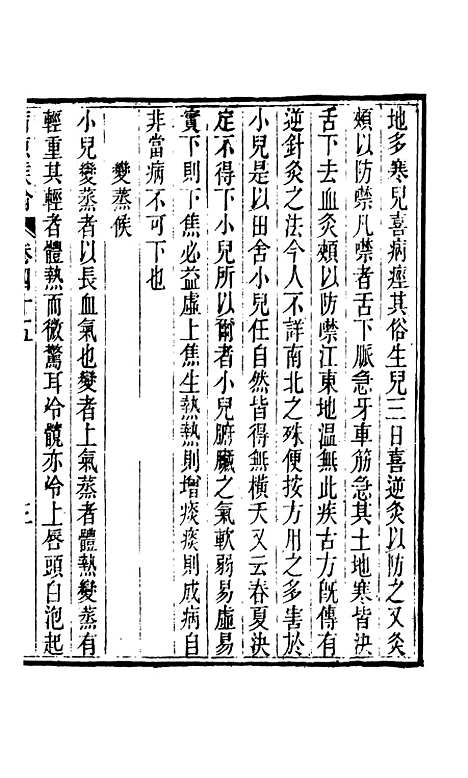 地多寒兒喜病痙其俗生兒三日喜逆灸以防之又灸
頰以防噤凡噤者舌下脈急牙車筋急其土地寒皆決
舌下去血灸頰以防噤江東地溫無此疾古方既傳有
逆針灸之法今人不詳南北之殊便按方用之多害於
小兒是以田舍小兒任自然皆得無橫夭又云春夏決
定不得下小兒所以爾者小兒腑臟之氣軟弱易虛易
實下則下焦必益虛上焦生熱熱則增痰痰則成病自
非當病不可下也
變蒸候
小兒變蒸者以長血氣也變者上氣蒸者體熱變蒸有
輕重其輕者體熱而微驚耳冷髖亦冷上唇頭白泡起
卷四十五
三